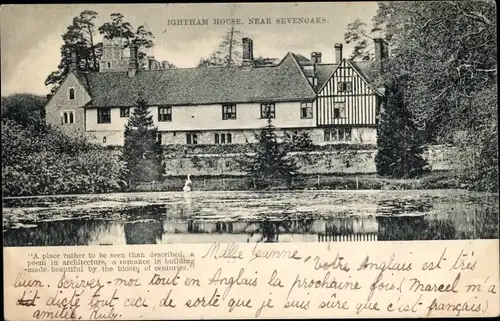 IGHTHAM HOUSE, NEAR SEVENOAKS.
"A place rather to be seen than described, a
poem in architecture, a romance in building
made beautiful by the bloom of centuries."
Votre Anglais est très
bien. Ecrivez-moi tout en Anglais la prochaine fois (Marcel m'a
dit tout ceci, de sorte que je suis sûre que c'est français)
amitié, Ruby.